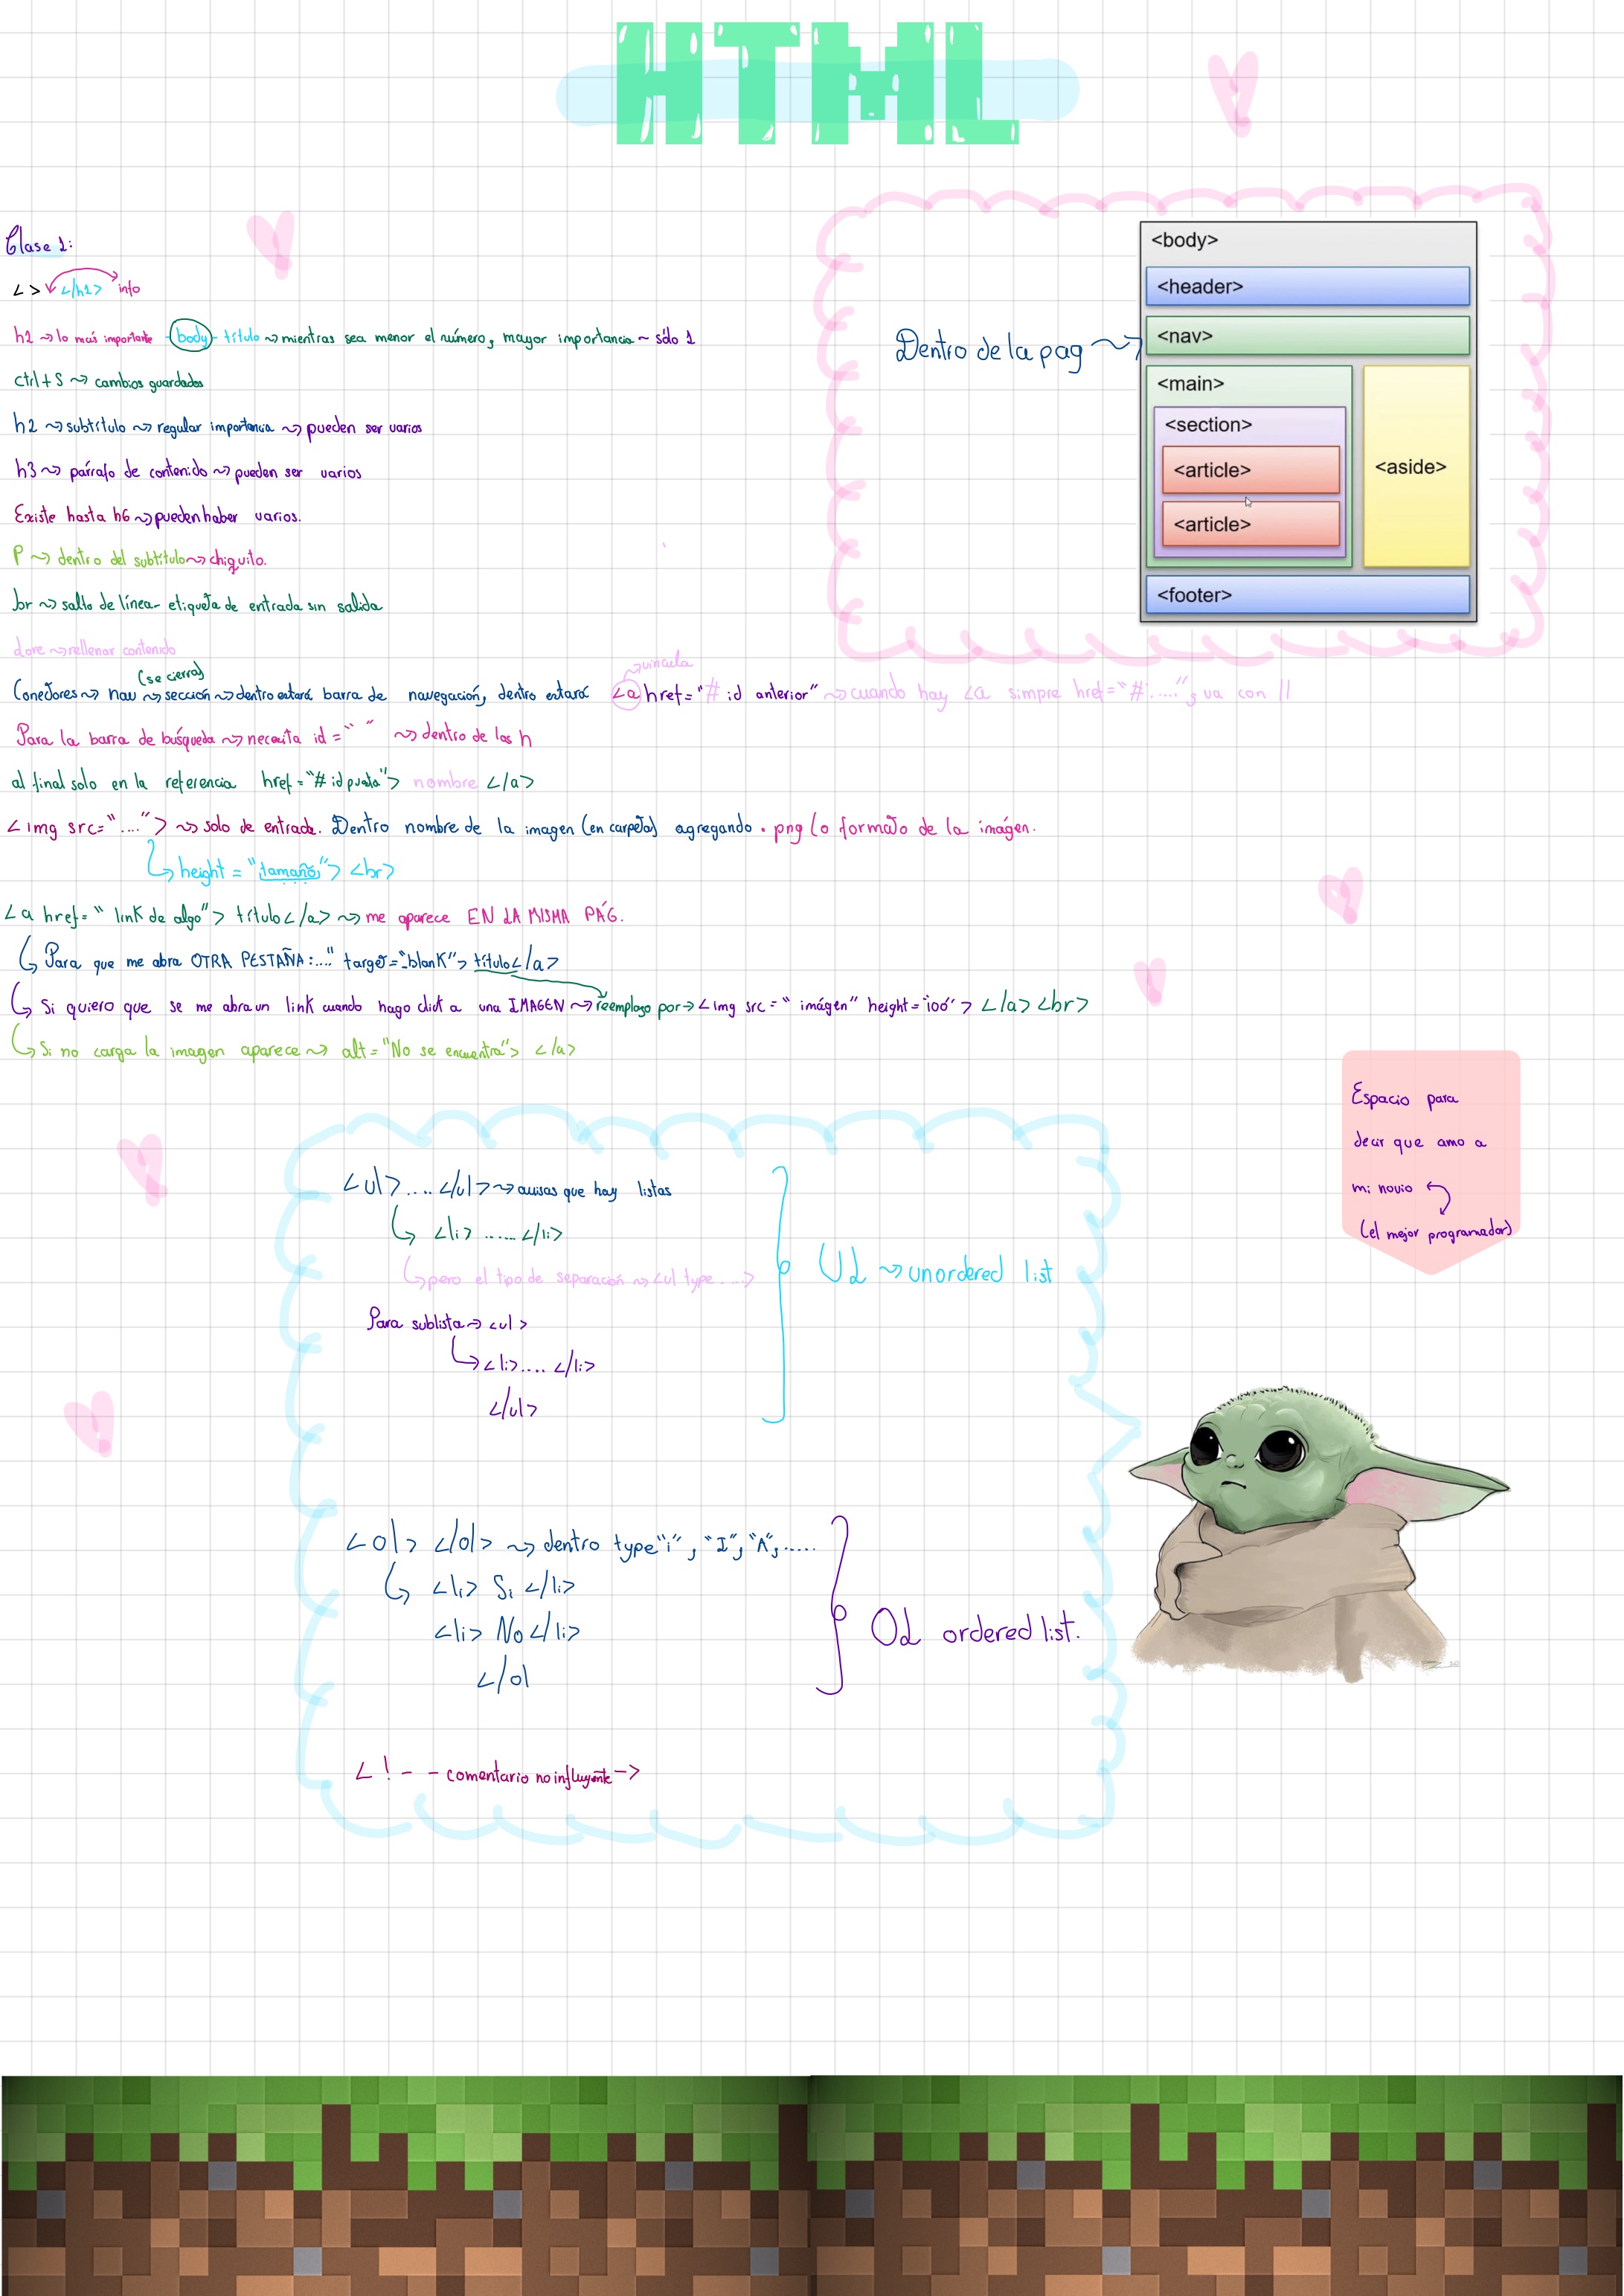 HTML
Clase 1:
< > </h1> info
h1 ~> lo más importante - body - título ~> mientras sea menor el número, mayor importancia ~ sólo 1
ctrl+S ~> cambios guardados
h2 ~> subtítulo ~> regular importancia ~> pueden ser varios
h3 ~> párrafo de contenido ~> pueden ser varios
Existe hasta h6 ~> pueden haber varios.
P ~> dentro del subtítulo ~> chiquito.
br ~> salto de línea - etiqueta de entrada sin salida
lore ~> rellenar contenido
(se cierra)
~> vincula
Conectores ~> nav ~> sección ~> dentro estará barra de navegación, dentro estará <a href="# id anterior" ~> cuando hay <a simpre href="#.....", va con //
Para la barra de búsqueda ~> necesita id=" " ~> dentro de los h
al final solo en la referencia href="# id puesta"> nombre </a>
<img src="...."> ~> solo de entrada. Dentro nombre de la imagen (en carpeta) agregando .png (o formato de la imágen.
height = "tamaño"> <br>
<a href=" link de algo"> título </a> ~> me aparece EN LA MISMA PÁG.
Para que me abra OTRA PESTAÑA:...." target="_blank"> título </a>
Si quiero que se me abra un link cuando hago click a una IMAGEN ~> reemplazo por → <img src=" imágen" height="100" > </a> <br>
Si no carga la imagen aparece ~> alt="No se encuentra"> </a>
Dentro de la pag ~>
<body>
<header>
<nav>
<main>
<section>
<article>
<article>
<aside>
<footer>
Espacio para
decir que amo a
mi novio
(el mejor programador)
<ul> .... </ul> ~> avisas que hay listas
<li> ...... </li>
pero el tipo de separación ~> <ul type ....>
Para sublista → <ul >
<li> .... </li>
</ul>
UL ~> unordered list
<ol> </ol> ~> dentro type "i", "I", "A", .....
<li> Si </li>
<li> No </li>
</ol
OL ordered list.
<! - - comentario no influyente ->